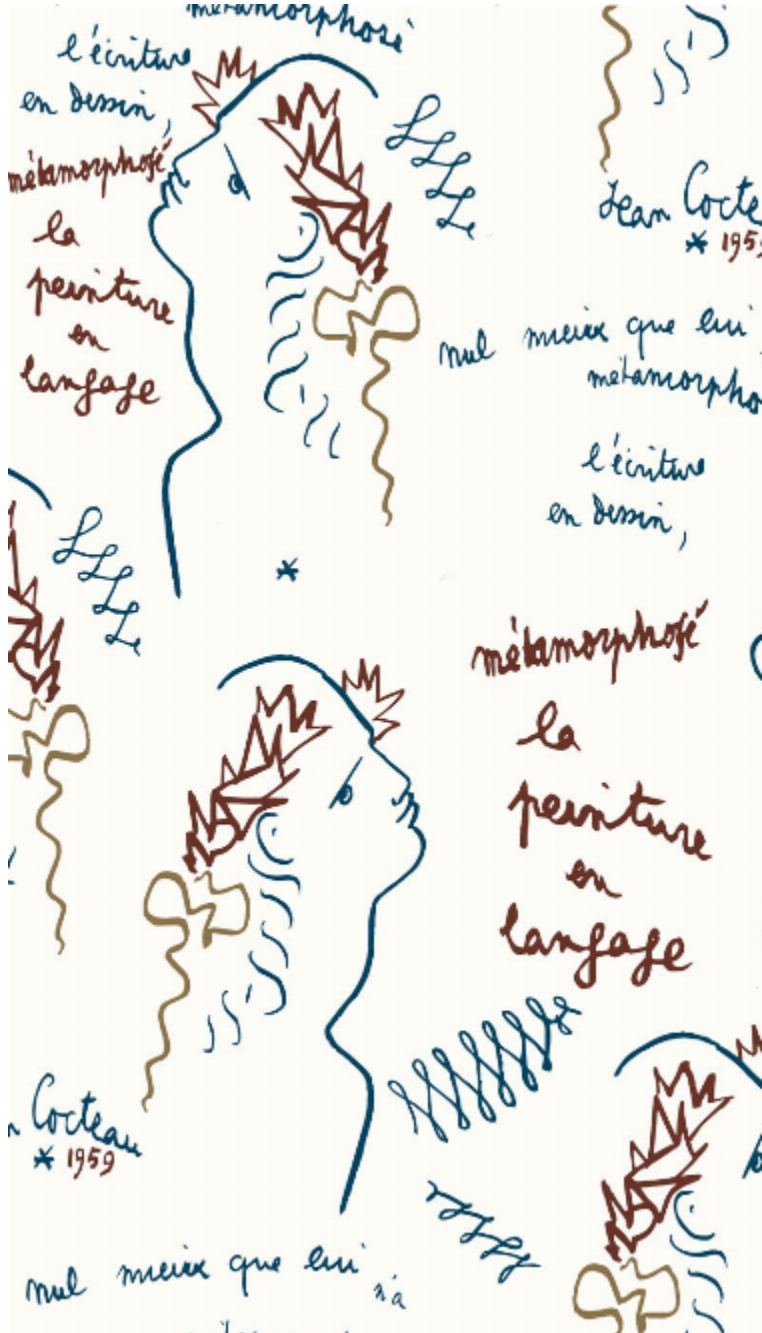 métamorphosé
l'écriture
en dessin,
métamorphosé
la
peinture
en
langage
Jean Cocte
* 195
nul mieux que lui
métamorpho
l'écriture
en dessin,
métamorphosé
la
peinture
en
langage
n Cocteau
* 1959
nul mieux que lui
n'a